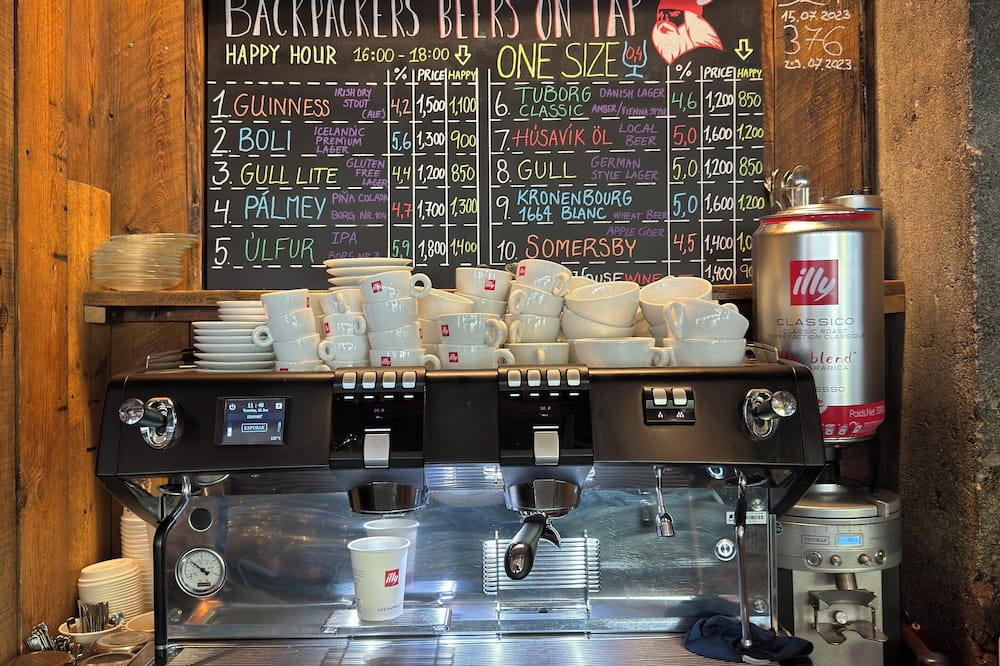 BACKPACKERS BEERS ON TAP
HAPPY HOUR 16:00 - 18:00
ONE SIZE 0,4
% PRICE HAPPY
1. GUINNESS IRISH DRY STOUT (ALE) 4,2 1,500 1,100
2. BOLI ICELANDIC PREMIUM LAGER 5,6 1,300 900
3. GULL LITE GLUTEN FREE LAGER 4,4 1,200 850
4. PÁLMEY PIÑA COLADA BORG NR. 4,7 1,700 1,300
5. ÚLFUR IPA 5,9 1,800 1,400
% PRICE HAPPY
6. TUBORG CLASSIC DANISH LAGER AMBER/VIENNA STYLE 4,6 1,200 850
7. HÚSAVÍK ÖL LOCAL BEER 5,0 1,600 1,200
8. GULL GERMAN STYLE LAGER 5,0 1,200 850
9. KRONENBOURG 1664 BLANC WHEAT BEER 5,0 1,600 1,200
10. SOMERSBY APPLE CIDER 4,5 1,400
HOUSE WINE 1,400
15.07.2023
376
29.07.2023
illy
CLASSICO
CLASSIC ROAST
TORRÉFACTION CLASSIQUE
blend
ARABICA
Poids Net
illy
illy
illy
illy
illy
illy
11:45
EXPOBAR
illy
LIVE
EXPOBAR